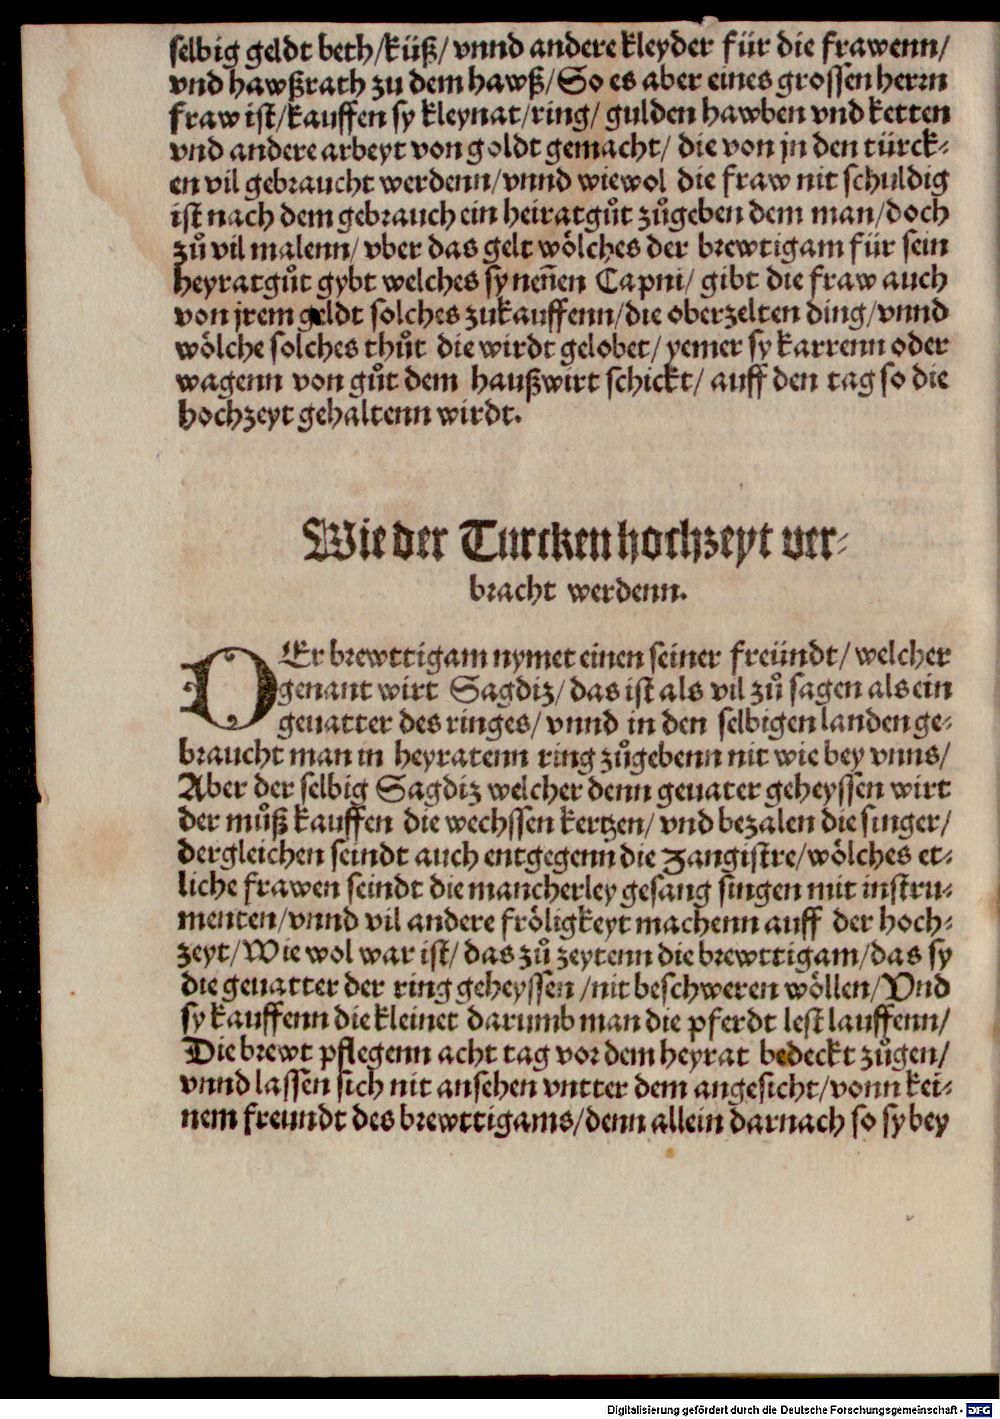 selbig geldt beth/küß/ vnnd andere kleyder für die frawenn/
vnd hawßrath zu dem hawß/So es aber eines grossen herrn
fraw ist/kauffen sy kleynat/ring/ gulden hawben vnd ketten
vnd andere arbeyt von goldt gemacht/ die von jn den türck⸗
en vil gebraucht werdenn/vnnd wiewol die fraw nit schuldig
ist nach dem gebrauch ein heiratgůt zůgeben dem man/doch
zů vil malenn/ vber das gelt wölches der brewtigam für sein
heyratgůt gybt welches sy neñen Capni/ gibt die fraw auch
von jrem geldt solches zukauffenn/die oberzelten ding/vnnd
wölche solches thůt die wirdt gelobet/ yemer sy karrenn oder
wagenn von gůt dem haußwirt schickt/ auff den tag so die
hochzeyt gehaltenn wirdt.
Wie der Turcken hochzeyt ver⸗
bracht werdenn.
DEr brewttigam nymet einen seiner freündt/ welcher
genant wirt Sagdiz/ das ist als vil zů sagen als ein
geuatter des ringes/ vnnd in den selbigen landen ge⸗
braucht man in heyratenn ring zůgebenn nit wie bey vnns/
Aber der selbig Sagdiz welcher denn geuater geheyssen wirt
der můß kauffen die wechssen kertzen/ vnd bezalen die singer/
dergleichen seindt auch entgegenn die Zangistre/wölches et⸗
liche frawen seindt die mancherley gesang singen mit instru⸗
menten/vnnd vil andere fröligkeyt machenn auff der hoch⸗
zeyt/Wie wol war ist/ das zů zeytenn die brewttigam/das sy
die geuatter der ring geheyssen /nit beschweren wöllen/Vnd
sy kauffenn die kleinet darumb man die pferdt lest lauffenn/
Die brewt pflegenn acht tag vor dem heyrat bedeckt zůgen/
vnnd lassen sich nit ansehen vntter dem angesicht/vonn kei⸗
nem freundt des brewttigams/denn allein darnach so sy bey
Digitalisierung gefördert durch die Deutsche Forschungsgemeinschaft - DFG